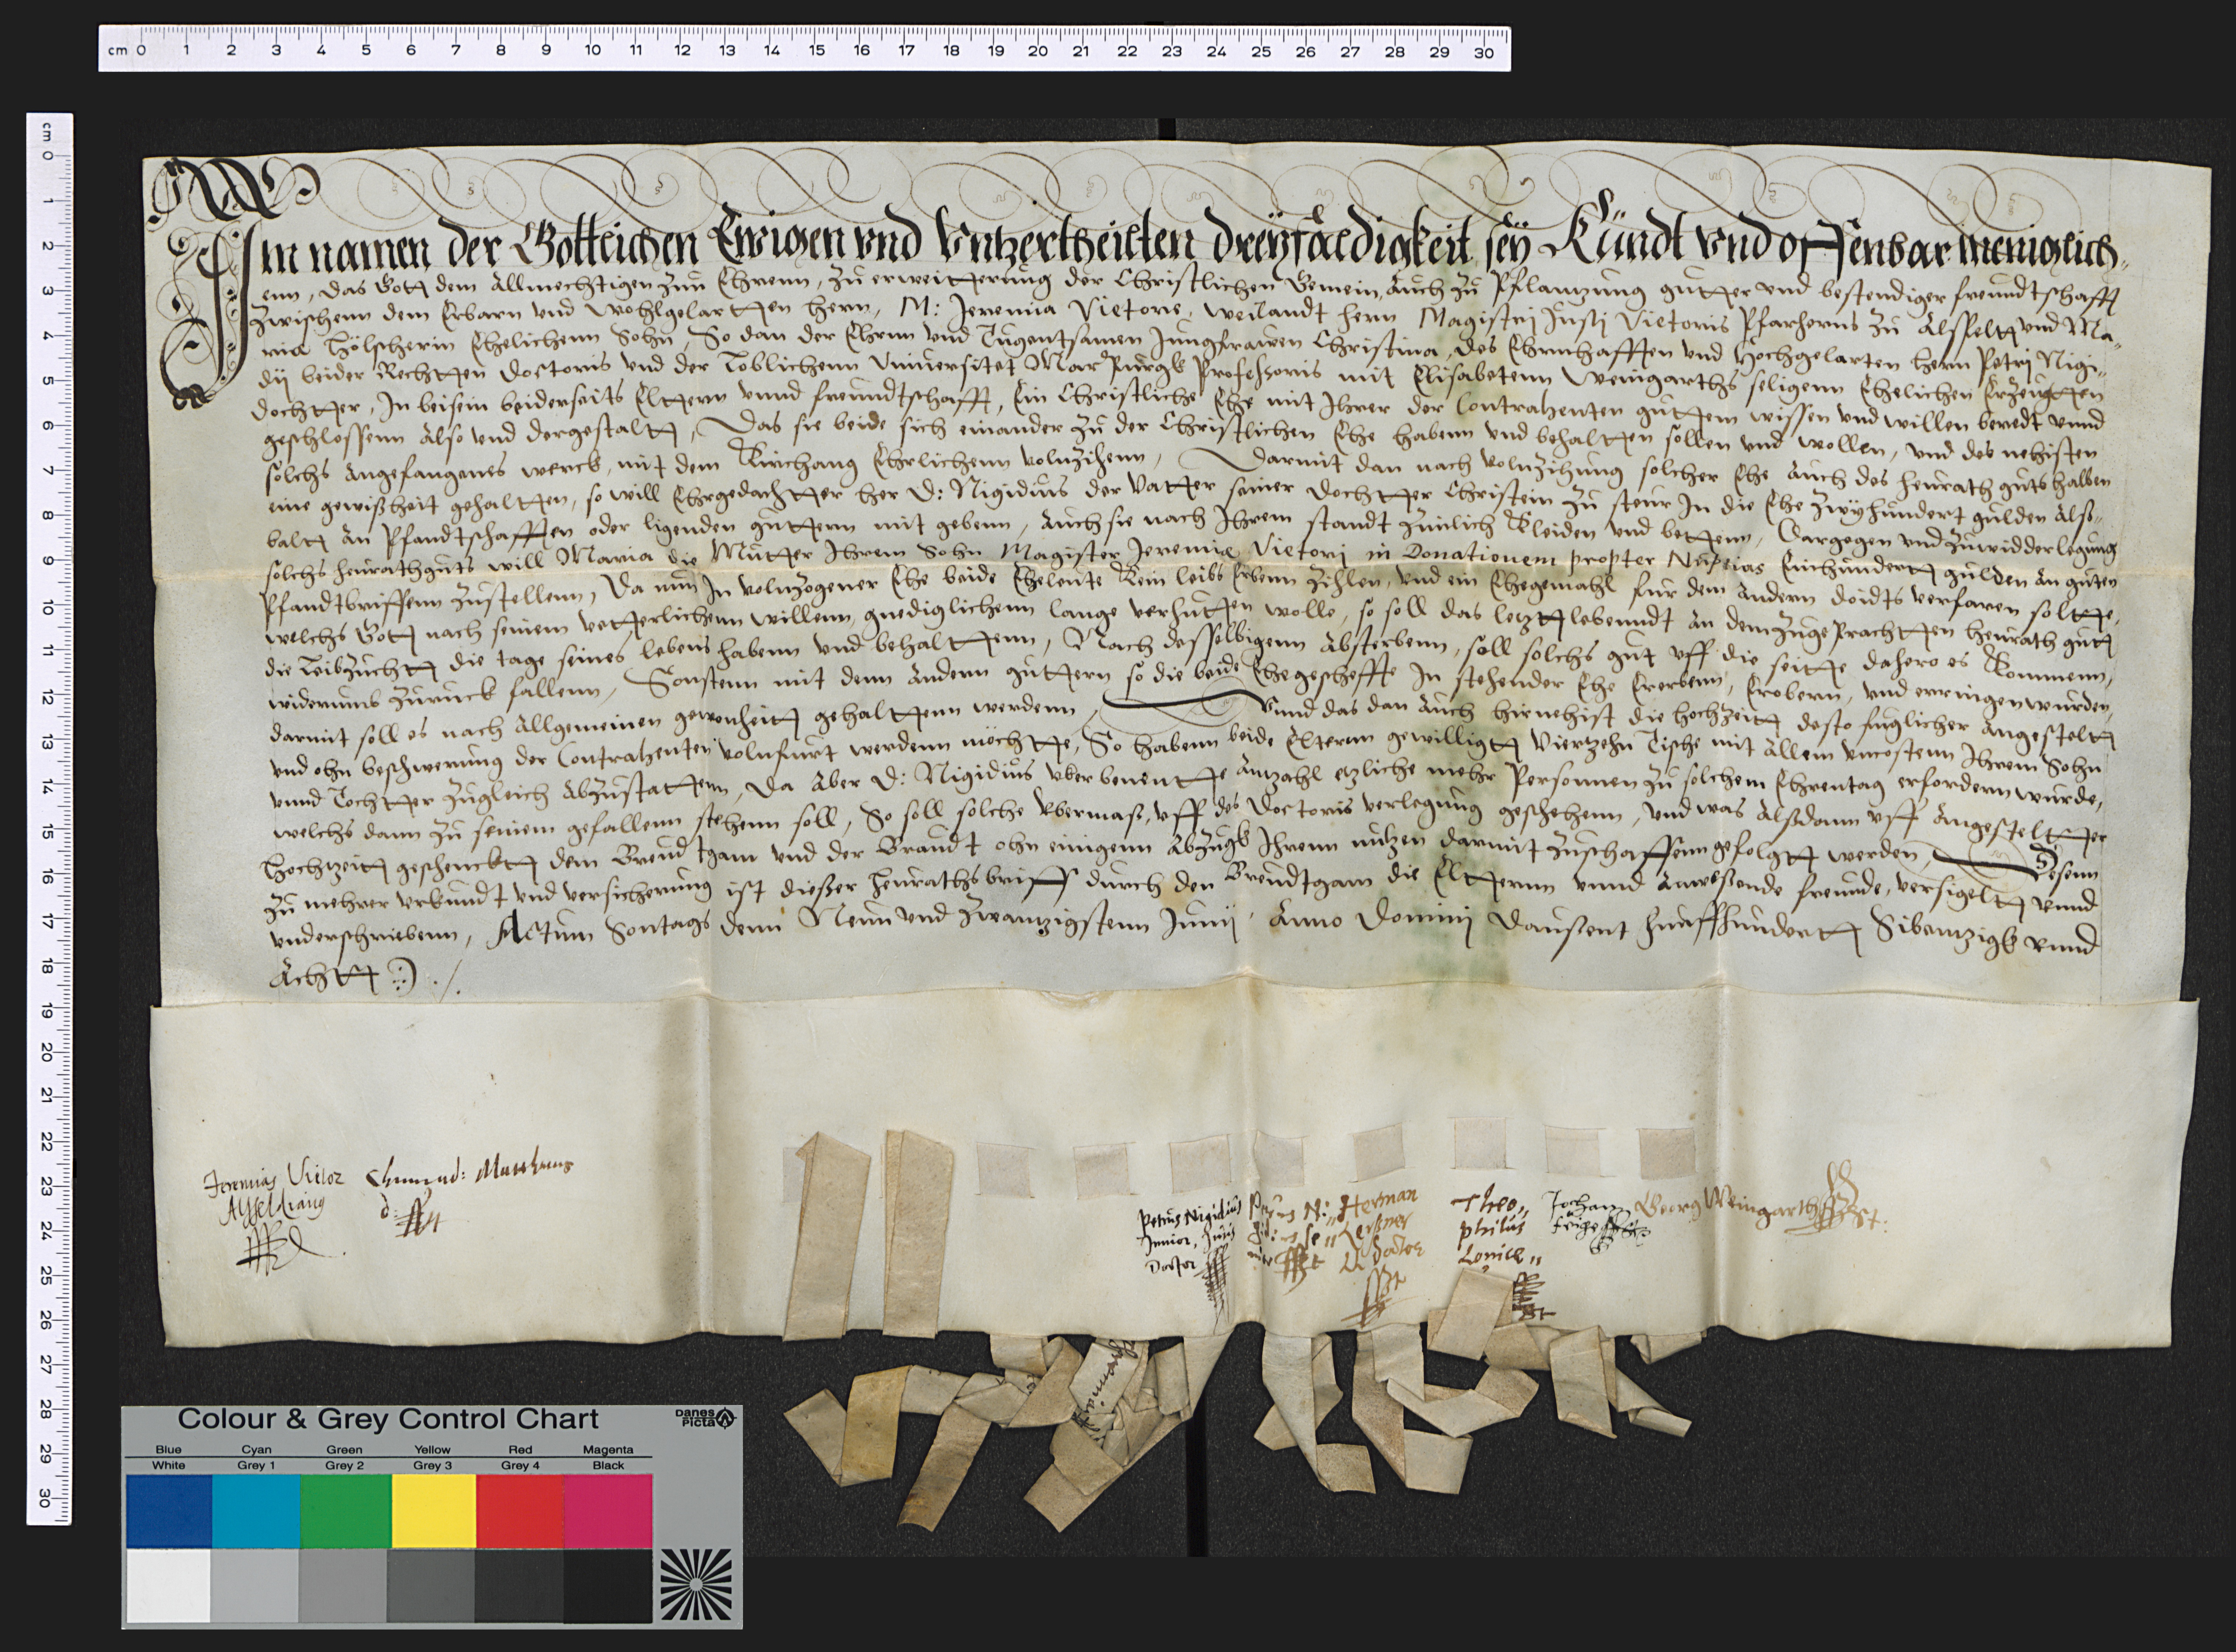 cm 0 1 2 3 4 5 6 7 8 9 10 11 12 13 14 15 16 17 18 19 20 21 22 23 24 25 26 27 28 29 30
cm 0 1 2 3 4 5 6 7 8 9 10 11 12 13 14 15 16 17 18 19 20 21 22 23 24 25 26 27 28 29 30
Im namen der Gottlichen Ewigen vnd Vntzertheilten dreÿfaldigkeit seÿ Kündt vnd offenbar meniglich„
enn, das Gott dem Allmechtigen zun Ehrenn, zu erweitterung der Christlichen Gemein, Auch zu Pflantzung gutter vnd bestendiger freundtschafft
zwischenn dem Erbarn vnd wohlgelartten hern, M: Jeremia Vietore, weilandt hern Magistrj Justj Vietoris Pfarherns zu Alsfeltt vnd Ma„
ria Hölscherin Ehelichenn Sohn, So dan der Ehrnn vnd Tugentsamen Jungfrawen Christina, des Ehrnhafften vnd Hochgelarten hern Petrj Nigi„
dij beider Rechtten Doctoris vnd der Loblichenn Vniuersitet Marpurgk Professoris mit Elisabetenn Weingarths seligenn Ehelichen Erzeugtten
dochtter, In beisein beiderseits Elternn vnnd freundtschafft, Ein Christliche Ehe mit Ihrer der Contrahenten guttem wissen vnd willen beredt vnnd
geschlossenn Also vnd dergestaltt, Das sie beide sich einander zu der Christlichen Ehe habenn vnd behaltten sollen vnd wollen, vnd des nehisten
solchs Angefangenes werck, mit dem Kirchgang Ehrlichenn volnzihenn, Darmit dan nach volnzihung solcher Ehe Auch des heurath guts halben
eine gewißheit gehaltten, so will Ehrgedachtter her D: Nigidius der Vatter seiner dochtter Christein zu steur In die Ehe zwÿhundert gulden Als„
baltt An Pfandtschafften oder ligenden guttern mit gebenn, Auch sie nach Ihrem standt zimlich Kleiden vnd bettenn, Dargegen vnd zuwidderlegung
solchs heurathguts will Maria die Mutter Ihrem Sohn Magister Jeremiæ Vietorj in Donationem propter Nuptias Einhundertt gulden An guten
Pfandtbriffenn zustellenn, Da nun In volnzogener Ehe beide Eheleute Kein leibs Erbenn zihlen, vnd ein Ehegemahl fur dem Andern doidts verfaren soltte,
welchs Gott nach seinem vetterlichenn willenn, gnediglichenn lange verhutten wolle, so soll das letztlebenndt An dem zugeprachtten heurath gutt
die Leibzuchtt die tage seines lebens habenn vnd behalttenn, Nach desselbigenn Absterbenn, soll solchs gut vff die seitte dahero es Kommenn,
widerumb zuruck fallenn, Sonstenn mit denn Andern guttern so die beide Ehegescheffte In stehender Ehe Ererbenn, Erobern, vnd erringen wurden,
darmit soll es nach Allgemeinen gewonheitt gehalttenn werdenn, Vnnd das dan Auch hirnehist die hochzeitt desto fuglicher Angesteltt
vnd ohn beschwerung der Contrahenten volnfurt werdenn möchtte, So habenn beide Elternn gewilligtt Viertzehn Tische mit Allem vncostenn Ihrem Sohn
vnnd Tochtter zugleich Abzustattenn, Da Aber D: Nigidius vber benentte Anzahl etzliche mehr Personnen zu solchem Ehrentag erfordern wurde,
welchs dann zu seinem gefallenn stehenn soll, So soll solche Vbermaß, vff des Doctoris verlegung geschehenn, vnd was Alsdann vff Angestelttter
Hochtzeitt geschencktt dem Breudtgam vnd der Braudt ohn einigenn Abzugk Ihrenn nutzen darmit zuschaffenn gefolgtt werden, Desenn
zu mehrer vrkundt vnd versicherung ist dießer heurathsbriff durch den Breudtgam die Elternn vnnd Anweßende freunde, versigeltt vnnd
vnderschriebenn, Actum Sontags denn Neun vnd zwantzigstenn Junij Anno Dominj Dausent funffhundertt Sibentzigk vnnd
Achtt
Jeremias Victor
Alsfeldianus
Petrus Nigidius
Junior, Juris
Doctor
Herman
Lersner
Doctor
Theo„
philus
Lonicer
Johann
Georg Weingarth
Colour & Grey Control Chart
Danes Picta
Blue Cyan Green Yellow Red Magenta
White Grey 1 Grey 2 Grey 3 Grey 4 Black